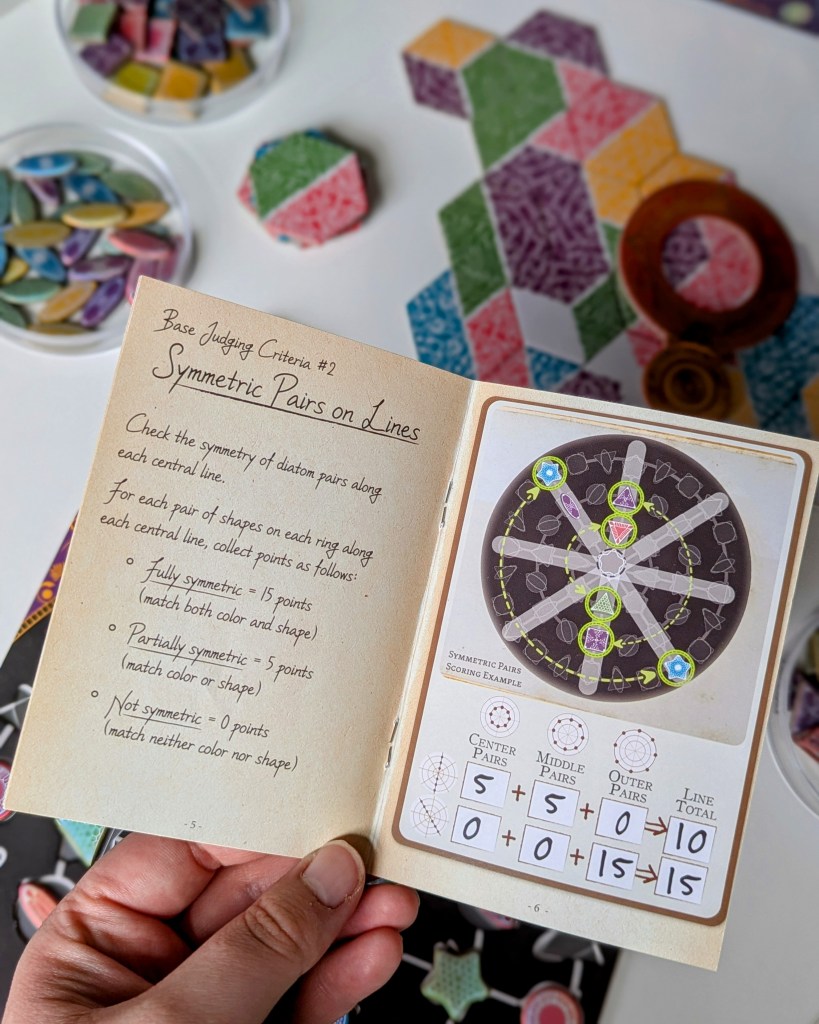 Base Judging Criteria #2
Symmetric Pairs on Lines
Check the symmetry of diatom pairs along
each central line.
For each pair of shapes on each ring along
each central line, collect points as follows:
Fully symmetric = 15 points
(match both color and shape)
Partially symmetric = 5 points
(match color or shape)
Not symmetric = 0 points
(match neither color nor shape)
- 5 -
SYMMETRIC PAIRS
SCORING EXAMPLE
CENTER
PAIRS
MIDDLE
PAIRS
OUTER
PAIRS
LINE
TOTAL
5 + 5 + 0 → 10
0 + 0 + 15 → 15
- 6 -